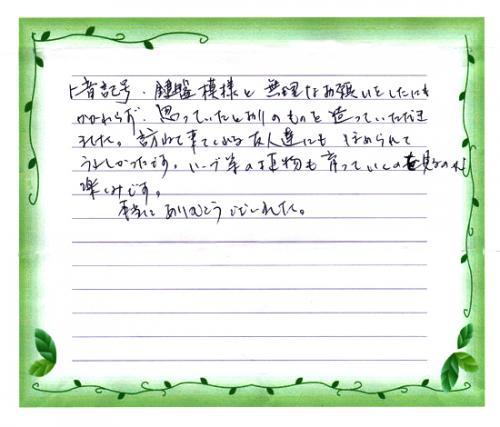 ト音記号、鍵盤模様と無理なお願いをしたにも
かかわらず、思っていたとおりのものを造っていただき
ました。訪ねて来てくれる友人達にもほめられて
うれしかったです。ハーブ等の植物も育っていくのを見るのも
楽しみです。
本当にありがとうございました。